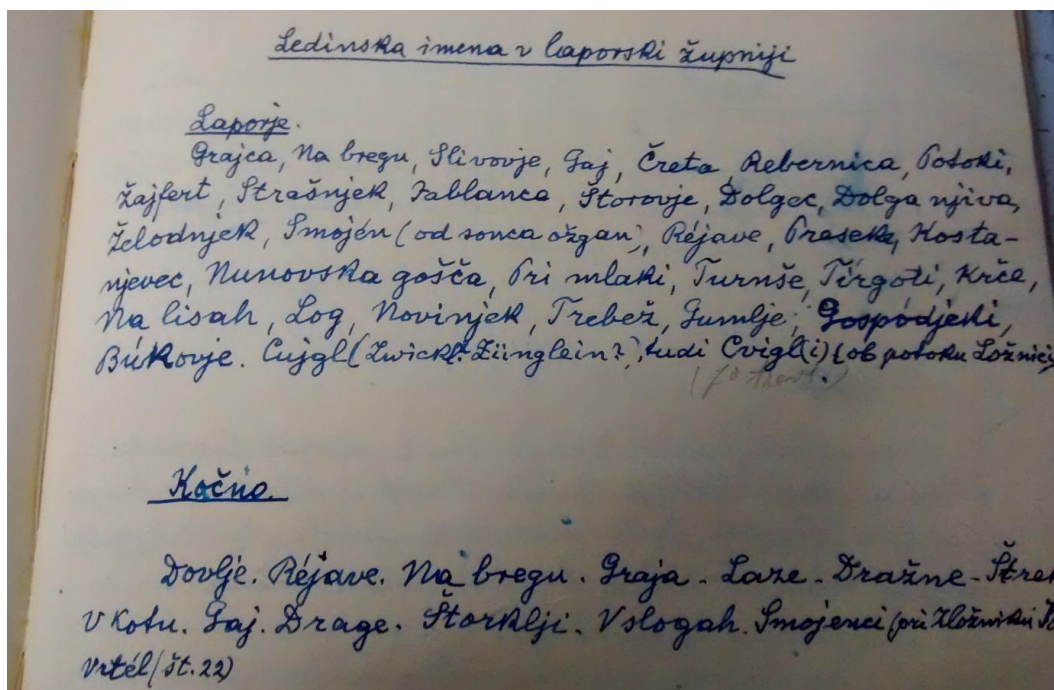 Ledinska imena v laporski župniji
Laporje.
Grajca, Na bregu, Slivovje, Gaj, Čreta, Rebernica, Potoki,
Žajfert, Strašnjek, Jablanca, Štorovje, Dolgec, Dolga njiva,
Želodnjek, Smojén (od sonca ožgan), Réjave, Preseka, Kosta-
njevec, Nunovska gošča, Pri mlaki, Turnše, Tírgoti, Krče,
Na lisah, Log, Novinjek, Trebež, Gumlje, Gospodjeki,
Búkovje. Cujgl (Zwickl? Zünglein?), tudi Cvigl(i) (ob potoku Ložnici)
Kočno.
Dovlje. Réjave. Na bregu. Graja - Laze - Dražne -
V kotu. Gaj. Drage. Štorklji. V slogah. Smojenci (pri Zložniku
Vrtél (št. 22)